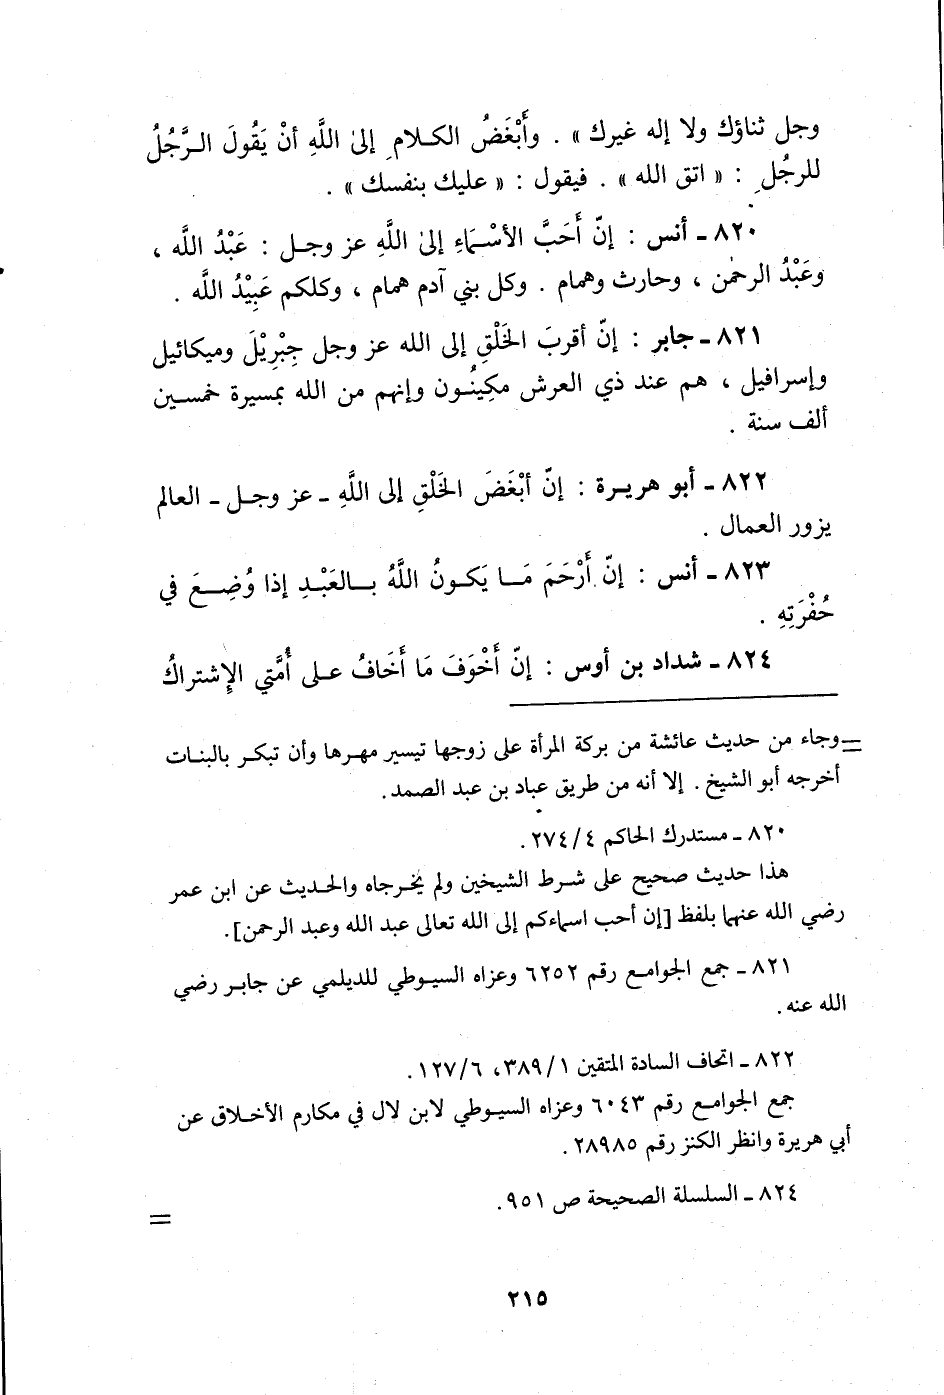 وجل ثناؤك ولا إله غيرك » . وأَبْغَضُ الكـلامِ إلىٰ اللَّهِ أنْ يَقُولَ الـرَّجُلُ
للرجُلِ : « اتق الله » . فيقول : « عليك بنفسك » .
٨٢٠ ـ أنس : إنّ أَحَبَّ الأسْـمَاءِ إلىٰ اللَّهِ عز وجـل : عَبْدُ اللَّه ،
وعَبْدُ الرحمٰن ، وحارث وهمام . وكل بني آدم همام ، وكلكم عَبِيْدُ اللَّه .
٨٢١ ـ جابر : إنّ أقربَ الخَلْقِ إلى الله عز وجل جِبْرِيْلَ وميكائيل
وإسرافيل ، هم عند ذي العرش مكِينُـون وإنهم من الله بمسيرة خمسـين
ألف سنة .
٨٢٢ ـ أبو هريـرة : إنّ أبْغَضَ الخَلْقِ إلى اللَّهِ ـ عز وجـل ـ العالم
يزور العمال .
٨٢٣ ـ أنس : إنّ أَرْحَمَ مَـا يَكـونُ اللَّهُ بـالعَبْـدِ إذا وُضِـعَ في
حُفْرَتِهِ .
٨٢٤ ـ شداد بن أوس : إنّ أَخْوَفَ مَا أَخَافُ علـى أُمَّتي الإِشتراكُ
= وجاء من حديث عائشة من بركة المرأة على زوجها تيسير مهـرها وأن تبكـر بالبنـات
أخرجه أبو الشيخ . إلا أنه من طريق عباد بن عبد الصمد.
٨٢٠ ـ مستدرك الحاكم ٢٧٤/٤.
هذا حديث صحيح على شـرط الشيخين ولم يخـرجاه والحـديث عن ابن عمر
رضي الله عنهما بلفظ [إن أحب اسماءكم إلى الله تعالى عبد الله وعبد الرحمن].
٨٢١ ـ جمع الجوامـع رقم ٦٢٥٢ وعزاه السيـوطي للديلمي عن جابـر رضي
الله عنه.
٨٢٢ ـ اتحاف السادة المتقين ٣٨٩/١، ١٢٧/٦.
جمع الجوامـع رقم ٦٠٤٣ وعزاه السيـوطي لابن لال في مكارم الأخـلاق عن
أبي هريرة وانظر الكنز رقم ٢٨٩٨٥.
٨٢٤ ـ السلسلة الصحيحة ص ٩٥١.
=
٢١٥